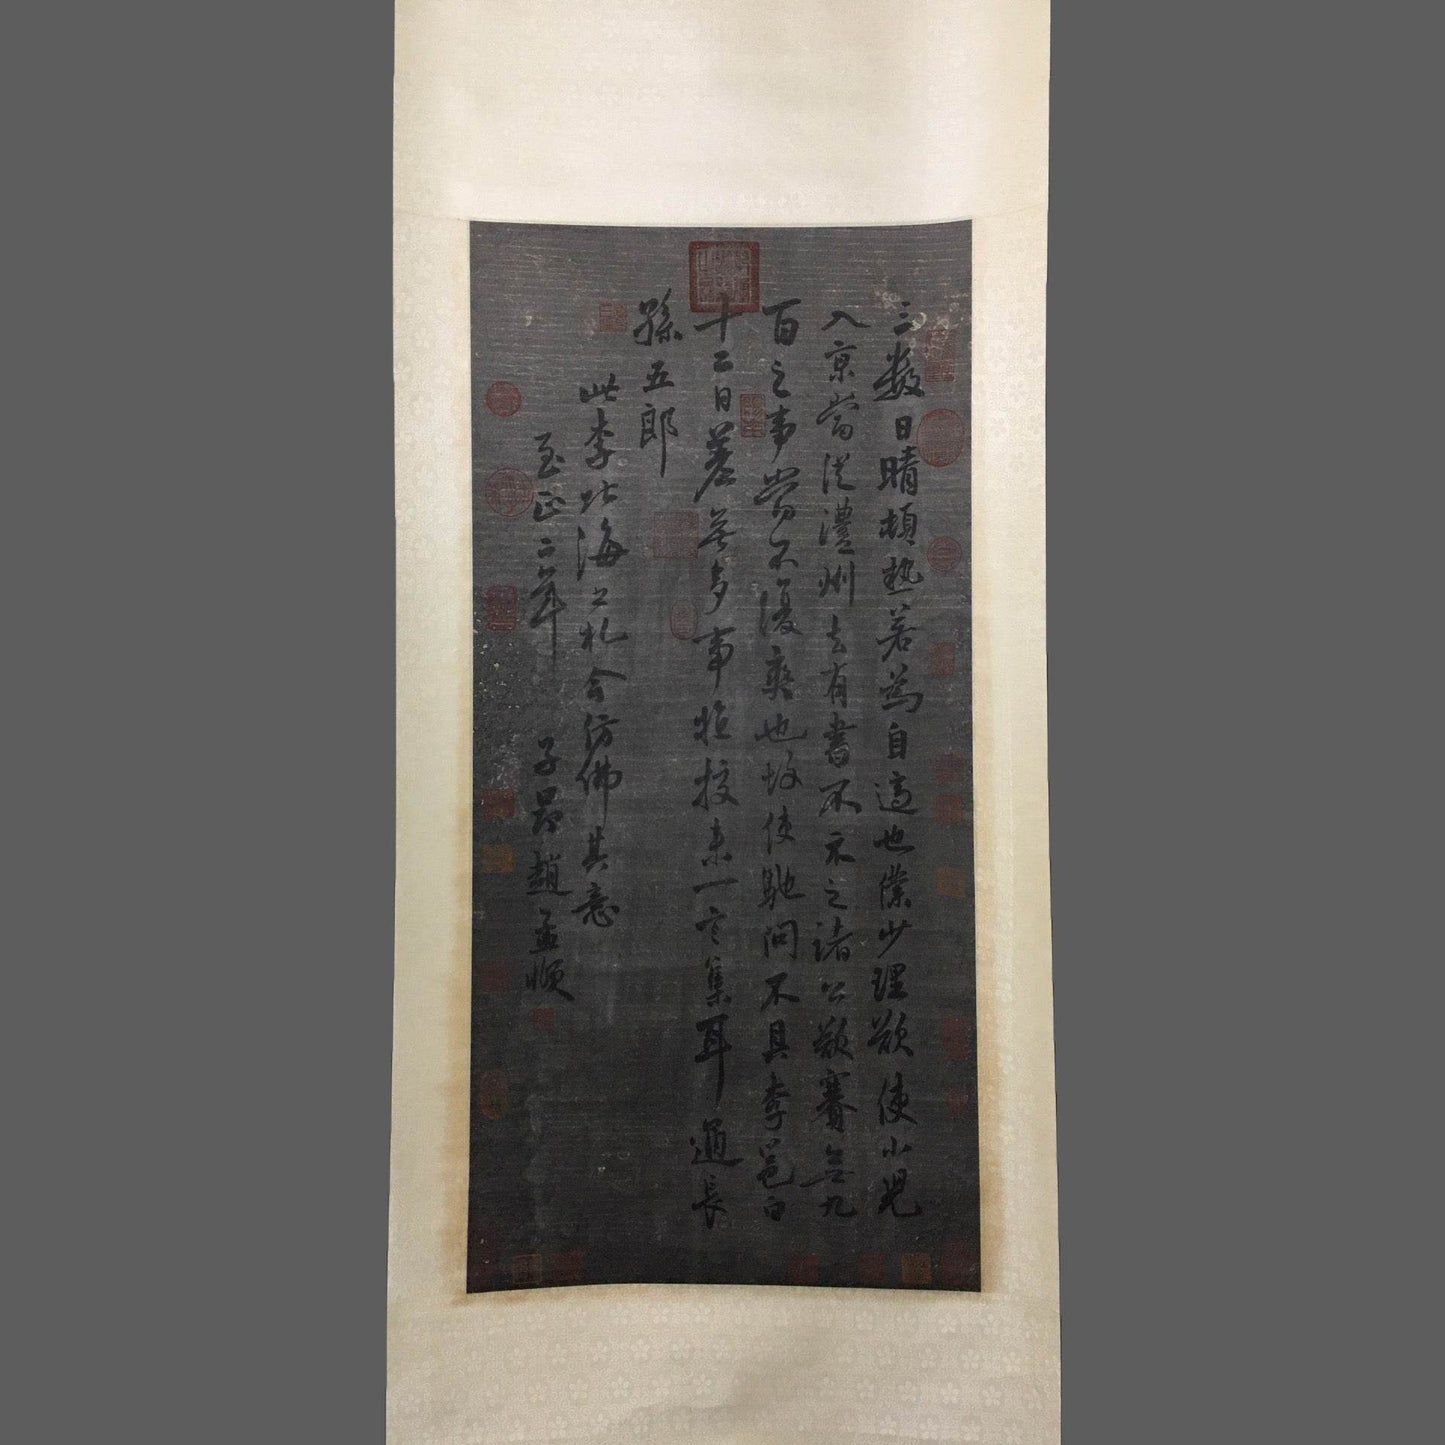 三数日晴頓热若為自適也僕少理欲使小兒
入京當従澧州去有書不示之諸公欲賽無九
百之事當不復爽也故使馳問不具李邕白
十二日差無多事恒投未一定集耳通長
孫五郎
此李北海之札今仿佛其意
至正二年 子昂趙孟順